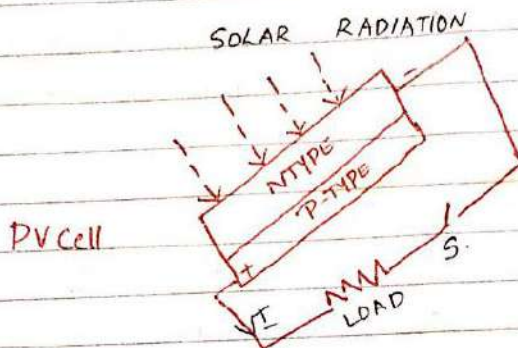 SOLAR RADIATION
-
N TYPE
P-TYPE
PV Cell
+
S.
I
LOAD